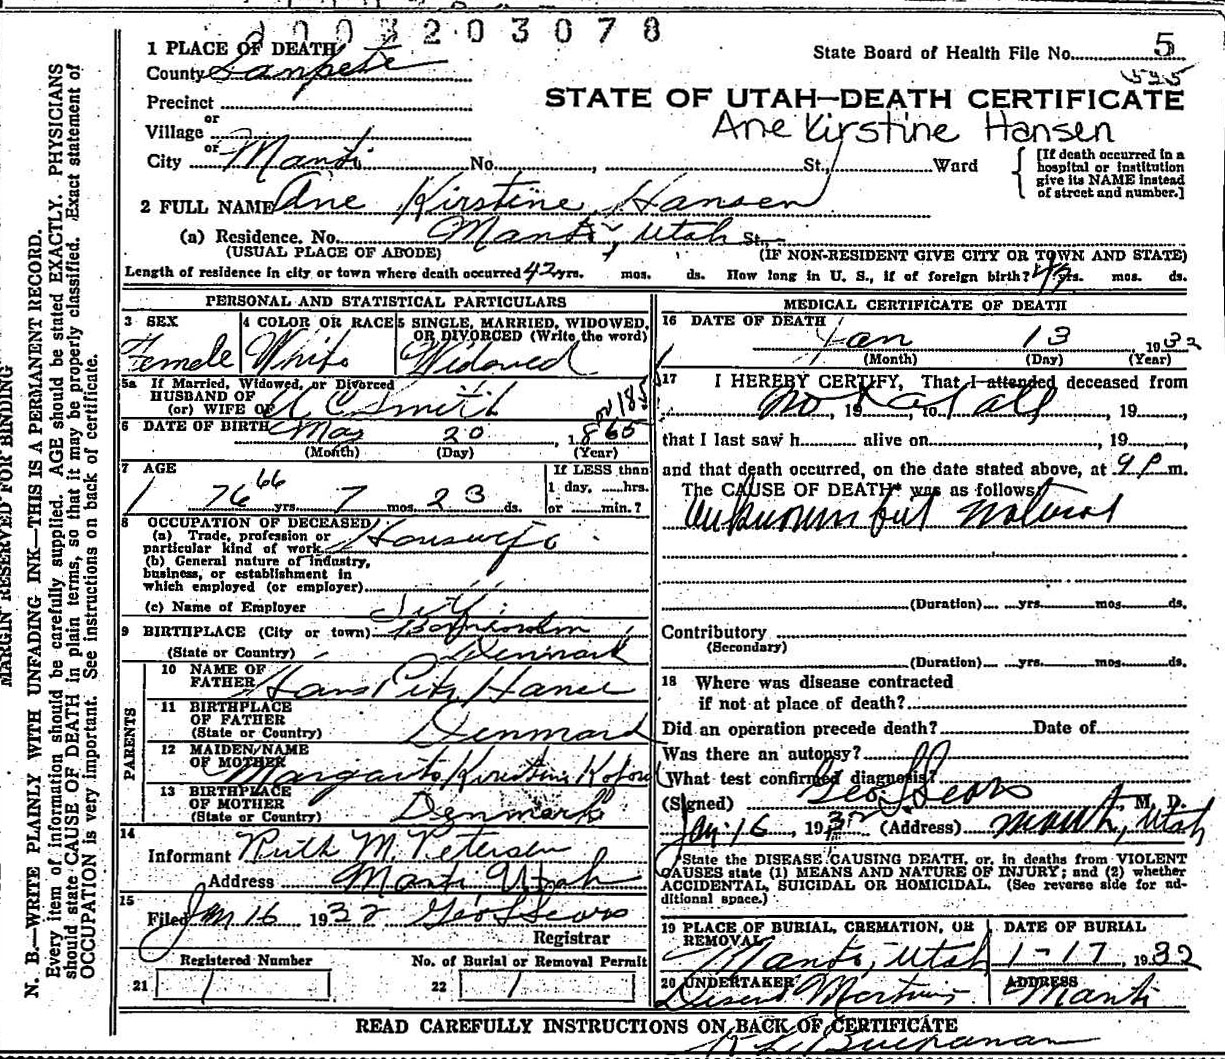 003203078
1 PLACE OF DEATH
County Sanpete
State Board of Health File No. 5
Precinct
or
Village
or
City Manti No. St., Ward
STATE OF UTAH—DEATH CERTIFICATE
Ane Kirstine Hansen
[If death occurred in a
hospital or institution
give its NAME instead
of street and number.]
2 FULL NAME Ane Kirstine Hansen
(a) Residence. No. Manti, Utah St.,
(USUAL PLACE OF ABODE) (IF NON-RESIDENT GIVE CITY OR TOWN AND STATE)
Length of residence in city or town where death occurred 42 yrs. mos. ds. How long in U. S., if of foreign birth? 49 yrs. mos. ds.
PERSONAL AND STATISTICAL PARTICULARS
3 SEX 4 COLOR OR RACE 5 SINGLE, MARRIED, WIDOWED, OR DIVORCED (Write the word)
Female White Widowed
5a If Married, Widowed, or Divorced
HUSBAND OF
(or) WIFE OF A C Smith
6 DATE OF BIRTH May 20, 1865 or 1855
(Month) (Day) (Year)
7 AGE If LESS than
1 day, hrs.
76 66 yrs. 7 mos. 23 ds. or min.?
8 OCCUPATION OF DECEASED
(a) Trade, profession or
particular kind of work Housewife
(b) General nature of industry,
business, or establishment in
which employed (or employer)
(c) Name of Employer
9 BIRTHPLACE (City or town) Bornholm
(State or Country) Denmark
PARENTS
10 NAME OF
FATHER Hans
11 BIRTHPLACE
OF FATHER
(State or Country) Denmark
12 MAIDEN NAME
OF MOTHER Kirstine Kofoed
13 BIRTHPLACE
OF MOTHER
(State or Country) Denmark
14
Informant Ruth M. Petersen
Address Manti Utah
15
Filed Jan 16 1932 Geo L Sears
Registrar
Registered Number No. of Burial or Removal Permit
21 1 22 1
MEDICAL CERTIFICATE OF DEATH
16 DATE OF DEATH Jan 13 1932
(Month) (Day) (Year)
17 I HEREBY CERTIFY, That I attended deceased from
not at all, 19 to , 19
that I last saw h alive on , 19
and that death occurred, on the date stated above, at 9 P m.
The CAUSE OF DEATH* was as follows:
Unknown but natural
(Duration) yrs. mos. ds.
Contributory
(Secondary)
(Duration) yrs. mos. ds.
18 Where was disease contracted
if not at place of death?
Did an operation precede death? Date of
Was there an autopsy?
What test confirmed diagnosis?
(Signed) Geo L Sears, M. D.
Jan. 16, 1932 (Address) Manti, Utah
*State the DISEASE CAUSING DEATH, or, in deaths from VIOLENT
CAUSES state (1) MEANS AND NATURE OF INJURY; and (2) whether
ACCIDENTAL, SUICIDAL OR HOMICIDAL. (See reverse side for ad-
ditional space.)
19 PLACE OF BURIAL, CREMATION, OR
REMOVAL DATE OF BURIAL
Manti, Utah 1-17, 1932
20 UNDERTAKER ADDRESS
Manti
READ CAREFULLY INSTRUCTIONS ON BACK OF CERTIFICATE
Buchanan
MARGIN RESERVED FOR BINDING
N. B.—WRITE PLAINLY WITH UNFADING INK—THIS IS A PERMANENT RECORD.
Every item of information should be carefully supplied. AGE should be stated EXACTLY. PHYSICIANS
should state CAUSE OF DEATH in plain terms, so that it may be properly classified. Exact statement of
OCCUPATION is very important. See instructions on back of certificate.